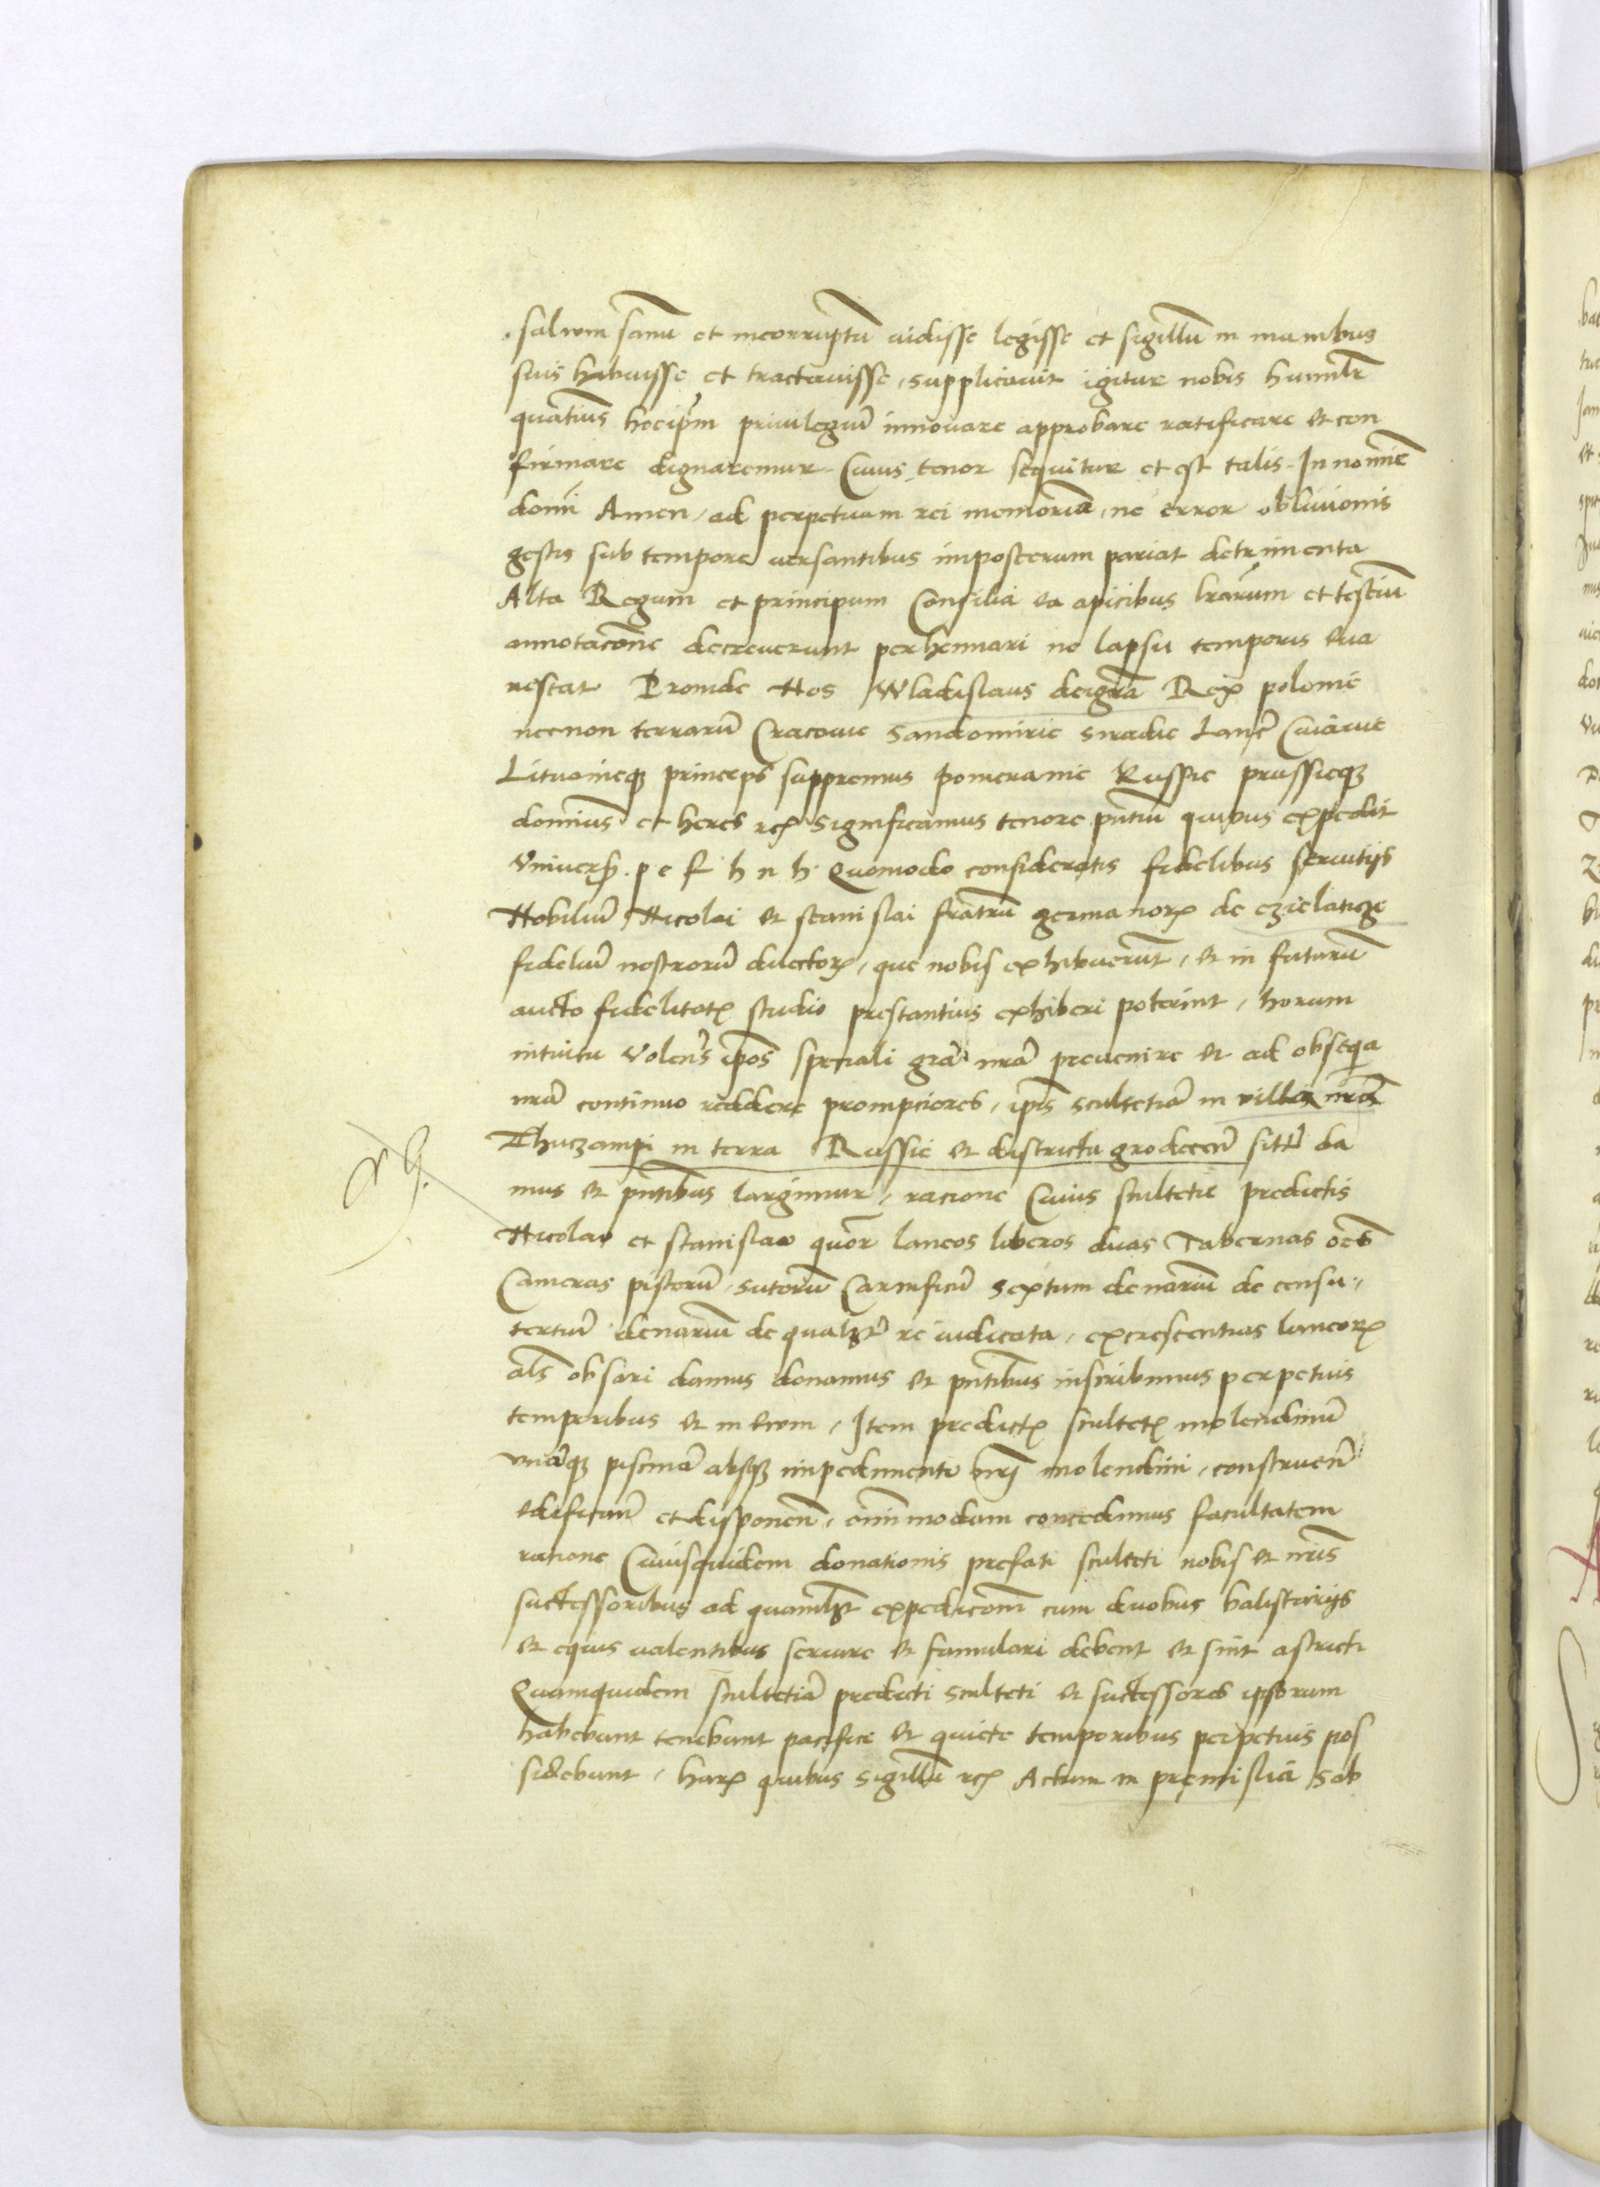 salvum sanũ et incorruptũ vidisse legisse et sigillũ in manibus
suis habuisse et tractavisse, supplicavit igitur nobis humilr
quatinus hocipm privilegiũ innovare approbare ratificare et con
firmare dignaremur. Cuius tenor sequitur et est talis. In nomine
domi Amen, ad perpetuam rei memoriã, ne error oblivionis
gestis sub tempore versantibus imposterum pariat detrimenta
Alta Regum et principum Consilia ea apicibus lrarum et testiũ
annotacõne decreverunt perhennari ne lapsu temporis eva
nescat Proinde Nos Wladislaus deigrã Rex polonie
necnon terrarũ Cracovie Sandomirie Siradie Lanc̃ Cuiavie
Lituonieqz princeps suppremus Pomeranie Russie prussieqz
dominus et heres rc̃ Significamus tenore pñtiũ quibus expedit
Univers̃. p e f h n h. Quomodo consideratis fidelibus servitijs
Nobiliũ Nicolai et Stanislai fratrũ germanorꝝ de czielaticze
fideliũ nostrorũ dilectorꝝ, que nobis exhibuerũt, et in futurũ
aucto fidelitatꝭ studio prestantius exhiberi poterint, horum
intuitu Volen̄s ip̃os speciali grã nrã prevenire et ad obsequia
nrã continuo reddere prompciores, ip̃is scultetiã in villa nrã
Thuczampi in terra Russie et districtu grodecen̄ sitã da
mus et pñtibus largimur, racione Cuius scultetie predictis
Nicolao et Stanislao quõr laneos liberos duas Tabernas oẽs
Cameras pistorũ, sutorũ Carnificũ Sextum denariũ de censu,
tertiũ denariũ de qualꝫt re iudicata, excrescentias laneorꝝ
als obsari damus donamus et pñtibus inscribimus perpetuis
temporibus et in evum, Item predictꝭ scultetꝭ molendinũ
unãqz piscinã absqz impedimento nrĩ molendini, construen̄
edifican̄ et disponen̄, oĩmmodam concedimus facultatem
racione Cuiusquidem donationis prefati sculteti nobis et nris
successoribus ad quamlꝫt expedicõem cum duobus balistarijs
et equis valentibus servire et famulari debent et sint astricti
Quamquidem scultetiã predicti sculteti et successores ipsorum
habebunt tenebunt pacifice et quiete temporibus perpetuis pos
sidebunt, harꝝ quibus sigillũ rc̃ Actum in premisliã Sab